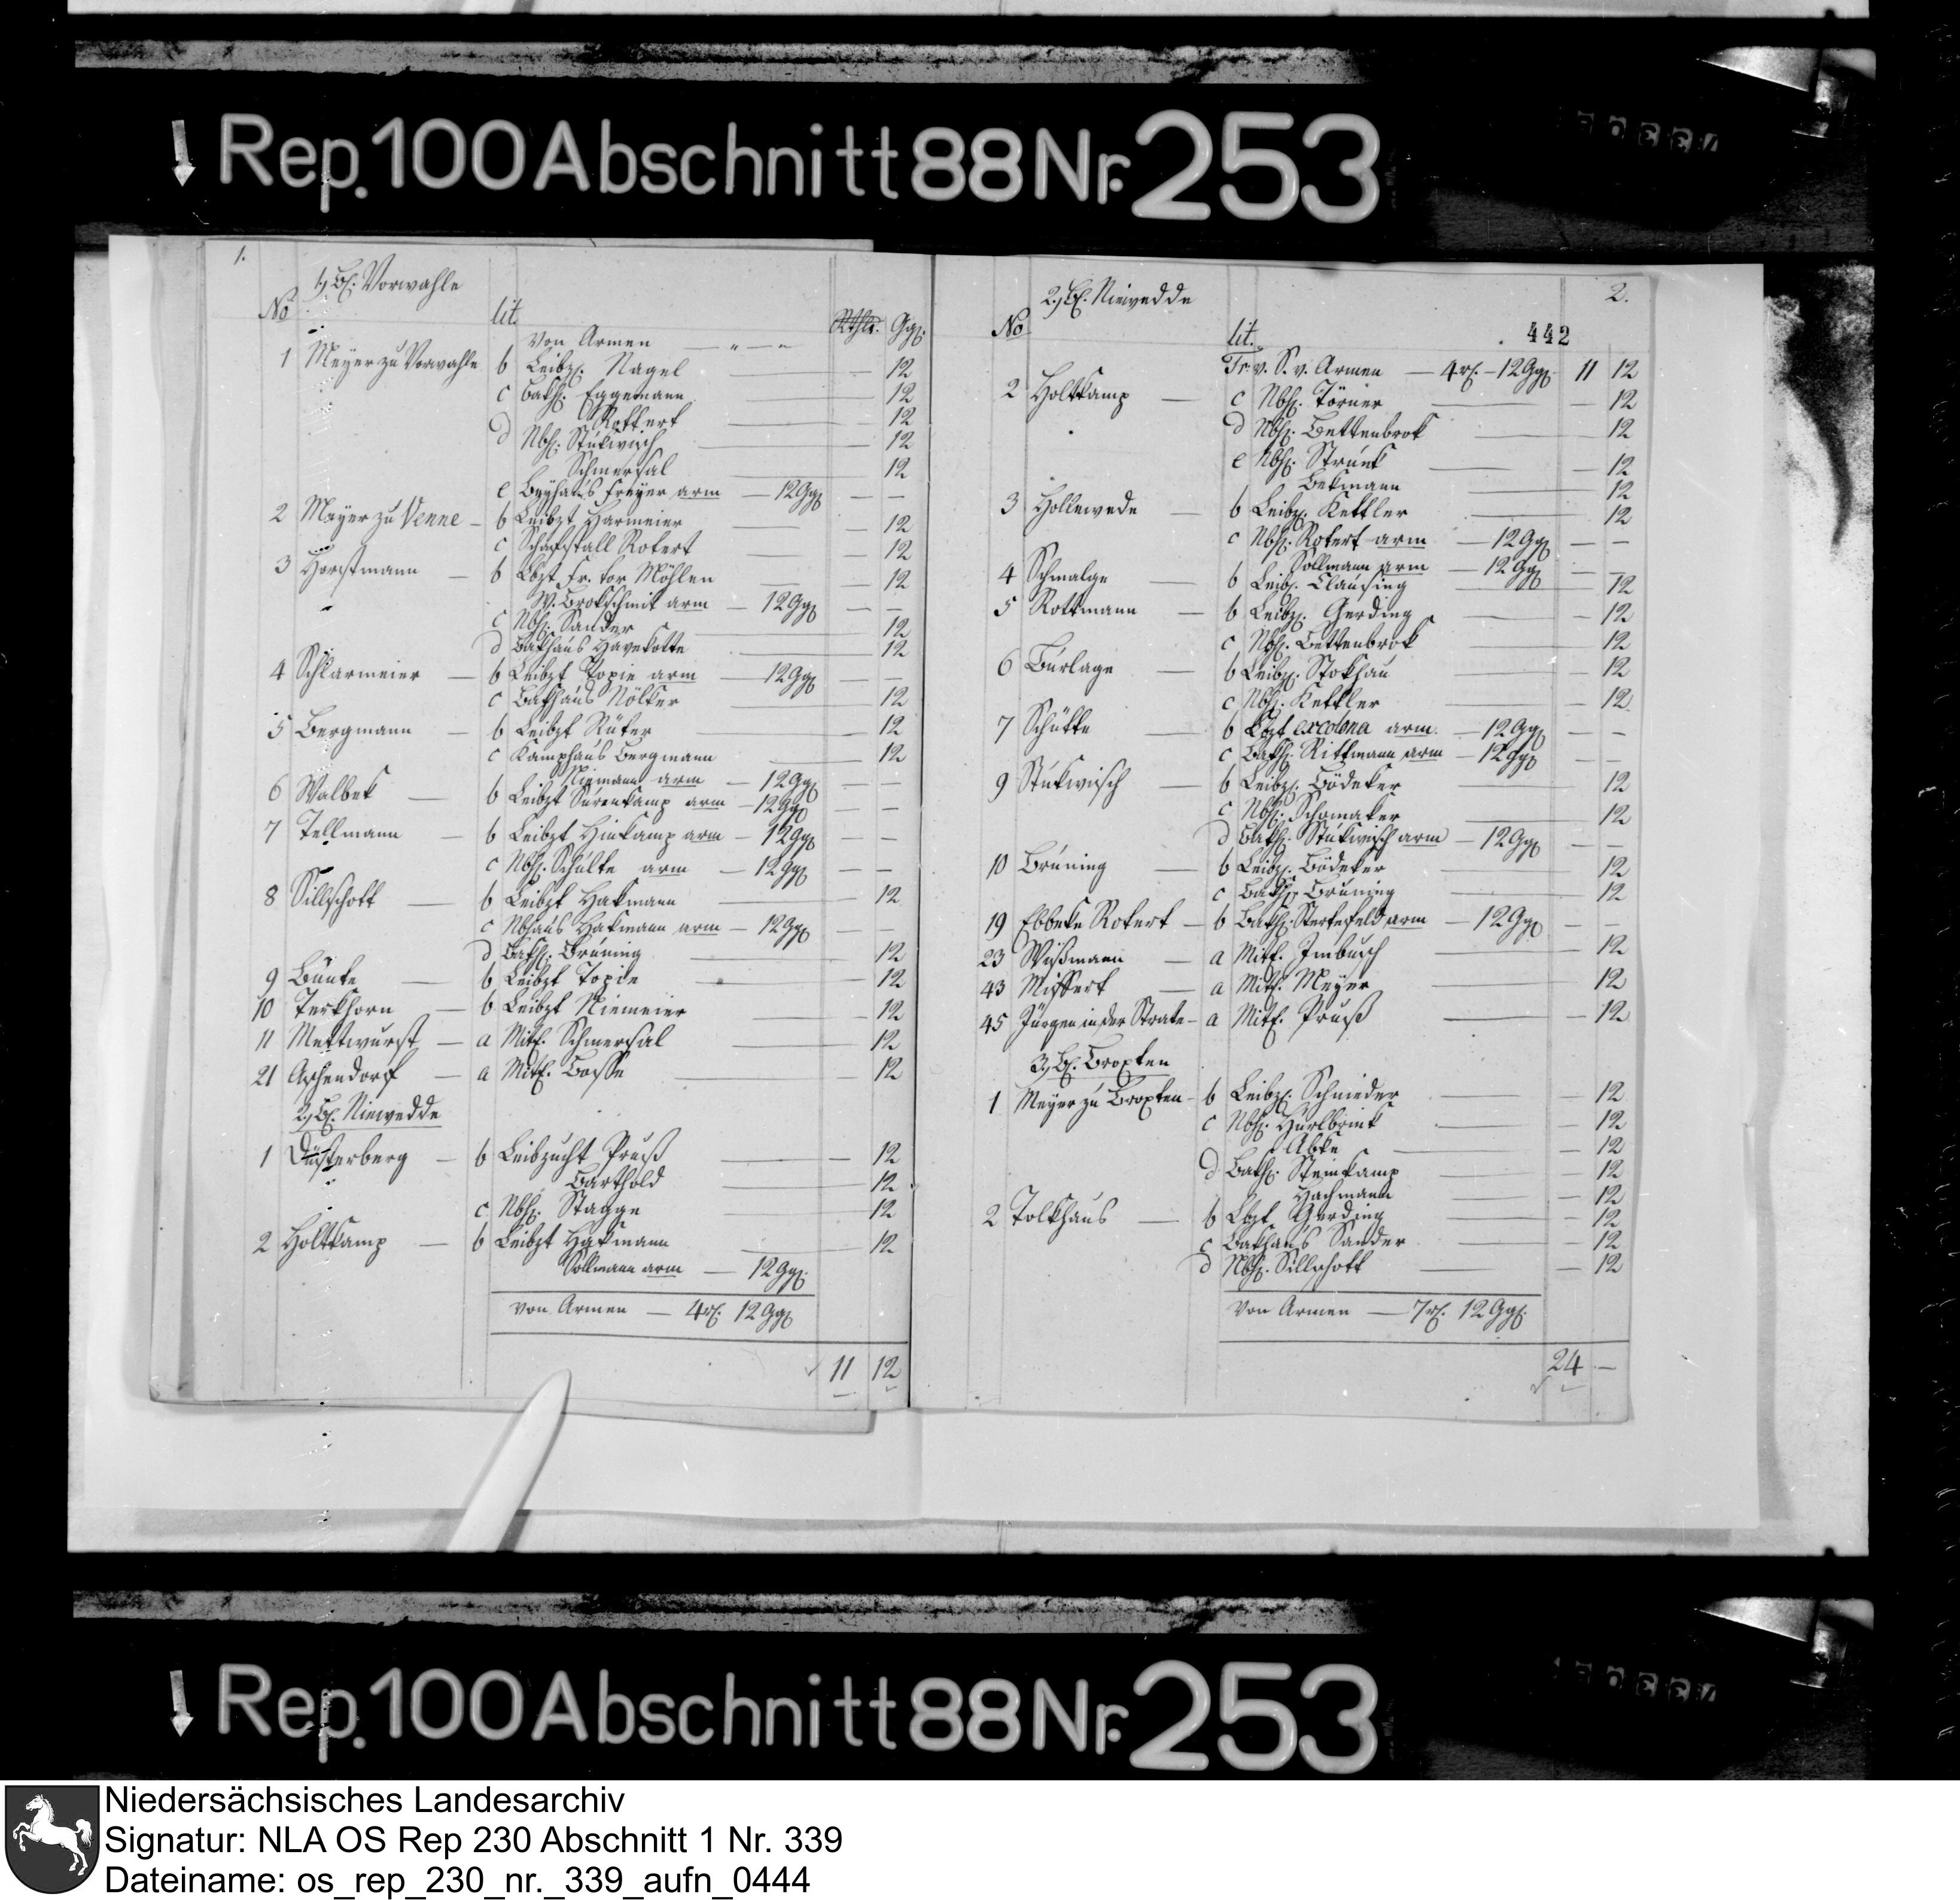 Rep. 100 Abschnitt 88 Nr. 253
1.
1, B. Vorwahle
No lit. Rthlr. Ggl.
Von Armen — " — "
1 Meyer zu Vorwahle b Leibz. Nagel — 12
c Bakh. Eggemann — 12
Rottert — 12
d Nbh. Stükwisch — 12
Schmersal — 12
e Beyhaus Freyer arm — 12 Ggl — —
2 Meyer zu Venne – b Leibzt Harmeier — 12
c Schafstall Rotert — 12
3 Horstmann — b Lbzt Fr. tor Möhlen — 12
W. Brokschmit arm — 12 Ggl — —
c Nbh. Sander — 12
d Bakhaus Havekotte — 12
4 Schlarmeier — b Leibzt Topie arm — 12 Ggl — —
c Bakhaus Nölker — 12
5 Bergmann — b Leibzt Rüter — 12
c Kamphaus Bergmann — 12
Niemann arm — 12 Ggl — —
6 Walbek — b Leibzt Surenkamp arm — 12 Ggl — —
7 Tellmann — b Leibzt Hinkamp arm — 12 Ggl — —
c Nbh. Schulte arm — 12 Ggl — —
8 Sillschott — b Leibzt Hakmann — 12
c Nbhaus Hakmann arm — 12 Ggl — —
d Bakh. Brüning — 12
9 Bünte — b Leibzt Topie — 12
10 Terkhorn — b Leibzt Niemeier — 12
11 Mettwurst — a Mith. Schmersal — 12
21 Aschendorf — a Mith. Bosse — 12
2, B. Niewedde
1 Düsterberg — b Leibzucht Pruß — 12
Barthold — 12
c Nbh. Stagge — 12
2 Holtkamp — b Leibzt Hakmann — 12
Sollmann arm — 12 Ggl.
von Armen — 4 rl. 12 Ggl
11 12
2, B. Niewedde 2.
No lit. 442
Tr. v. S. v. Armen — 4 rl. – 12 Ggl. 11 12
2 Holtkamp — c Nbh. Törner — 12
d Nbh. Bettenbrok — 12
e Nbh. Strunk — 12
Bekmann — 12
3 Hollewede — b Leibz. Kettler — 12
c Nbh. Rotert arm — 12 Ggl — —
Sollmann arm — 12 Ggl — —
4 Schmalge — b Leibz. Clausing — 12
5 Rottmann — b Leibz. Gerding — 12
c Nbh. Bettenbrok — 12
6 Burlage — b Leibz. Stokhau — 12
c Nbh. Kettler — 12
7 Schütte b Lbzt excolona arm — 12 Ggl — —
c Bakh. Rittmann arm — 12 Ggl — —
9 Stükwisch — b Leibz. Bödeker — 12
c Nbh. Schomaker — 12
d Bakh. Stükwisch arm — 12 Ggl — —
10 Brüning — b Leibz. Bödeker — 12
c Bakh. Brüning — 12
19 Ebbeke Rotert — b Bakh. Stertefeld arm — 12 Ggl — —
23 Wißmann — a Mith. Imbusch — 12
43 Missert — a Mith. Meyer — 12
45 Jürgen in der Strate – a Mith. Pruß — 12
3, B. Broxten
1 Meyer zu Broxten – b Leibz. Schnieder — 12
c Nbh. Hürlbrink — 12
Abke — 12
d Bakh. Steinkamp — 12
Hachmann — 12
2 Tolkhaus — b Lbzt Gerding — 12
c Bakhaus Sander — 12
d Nbh. Sillschott — 12
Von Armen — 7 rl. 12 Ggl.
24 —
Rep. 100 Abschnitt 88 Nr. 253
Niedersächsisches Landesarchiv
Signatur: NLA OS Rep 230 Abschnitt 1 Nr. 339
Dateiname: os_rep_230_nr._339_aufn_0444